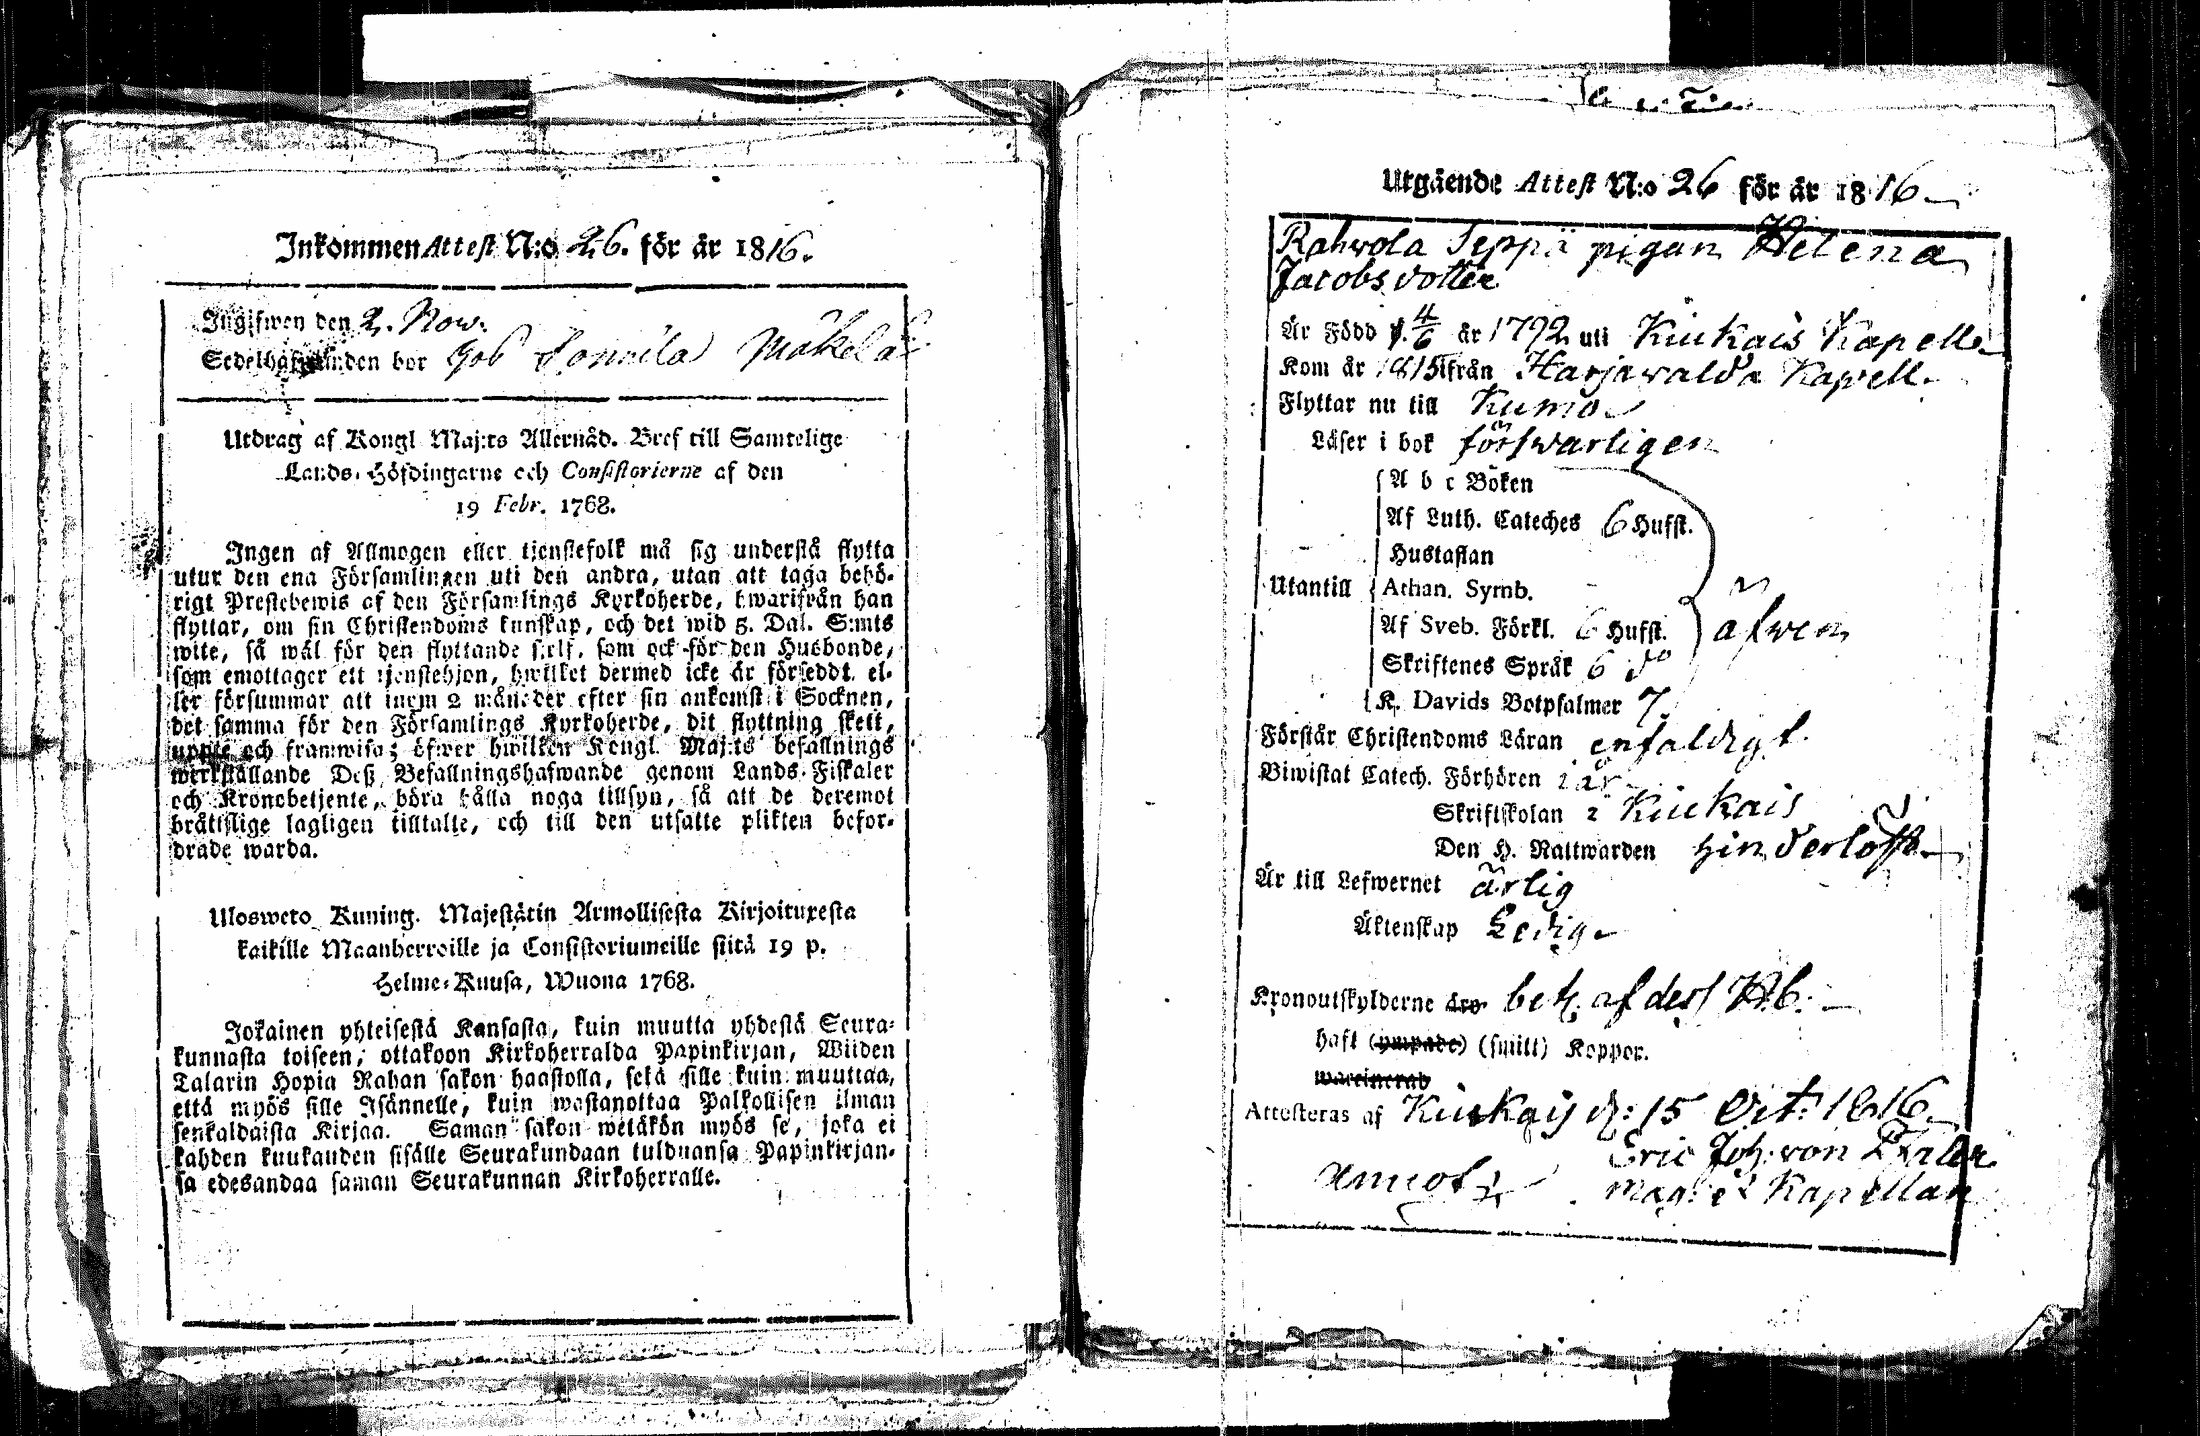 Inkommen Attest N:o 26. för år 1816.
Ingifwen den 2. Now.
Sedelhafwanden bor hos Sonnila Mäkelä
Utdrag af Kongl Maj:ts Allernåd. Bref till Samtelige
Lands-Höfdingarne och Consistorierne af den
19 Febr. 1768.
Ingen af Allmogen eller tjenstefolk må sig understå flytta
utur den ena Församlingen uti den andra, utan att taga behö-
rigt Prestebewis af den Församlings Kyrkoherde, hwarifrån han
flyttar, om sin Christendoms kunskap, och det wid 5. Dal. S:mts
wite, så wäl för den flyttande sjelf, som ock för den Husbonde,
som emottager ett tjenstehjon, hwilket dermed icke är förseddt, el-
ler försummar att inom 2 månader efter sin ankomst i Socknen,
det samma för den Församlings Kyrkoherde, dit flyttning skett,
uppte och framwisa; öfwer hwilken Kongl. Maj:ts befallnings
werkställande Deß Befallningshafwande genom Lands-Fiskaler
och Kronobetjente, böra hålla noga tillsyn, så att de deremot
bråttslige lagligen tilltalte, och till den utsatte plikten befor-
drade warda.
Ulosweto Kuning. Majestätin Armollisesta Kirjoituxesta
kaikille Maanherroille ja Consistoriumeille siitä 19 p.
Helme-Kuusa, Wuona 1768.
Jokainen yhteisestä Kansasta, kuin muutta yhdestä Seura-
kunnasta toiseen, ottakoon Kirkoherralda Papinkirjan, Wiiden
Talarin Hopia Rahan sakon haastolla, sekä sille kuin muuttaa,
että myös sille Isännelle, kuin wastanottaa Palkollisen ilman
senkaldaista Kirjaa. Saman sakon wetäkön myös se, joka ei
kahden kuukauden sisälle Seurakundaan tulduansa Papinkirjan-
sa edesandaa saman Seurakunnan Kirkoherralle.
Utgående Attest N:o 26 för år 1816
Rahvola Seppä pigan Helena
Jacobsdotter
Är Född d. 4/6 år 1792 uti Kiukais Kapell
Kom år 1815 ifrån Harjawalda Kapell.
Flyttar nu till Kumo
Läser i bok förswarligen
A b c Boken
Af Luth. Cateches 6 Hufst.
Hustaflan
Utantill Athan. Symb.
Af Sveb. Förkl. 6 Hufst. äfwen
Skriftenes Språk 6 do
K. Davids Botpsalmer 7
Förstår Christendoms Läran enfaldigt
Biwistat Catech. Förhören i år
Skriftskolan i Kiukais
Den H. Nattwarden hinderlöst
Är till Lefwernet ärlig
Äktenskap Ledig
Kronoutskylderne äro bet. af dess Hb.
haft (ympade) (smitt) Koppor.
warit
Attesteras af Kiukais d: 15 Oct: 1816
Eric Joh: von
Mag: et Kapellan